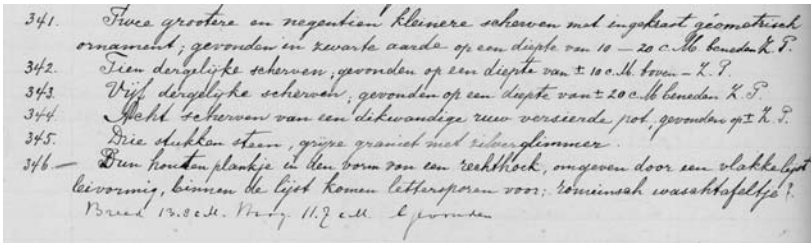 341. Twee grootere en negentien kleinere scherven met ingekrast geometrisch
ornament; gevonden in zwarte aarde op een diepte van 10 – 20 c.M. beneden Z. P.
342. Tien dergelijke scherven; gevonden op een diepte van ± 10 c.M. boven – Z. P.
343. Vijf dergelijke scherven; gevonden op een diepte van ± 20 c.M. beneden Z. P.
344. Acht scherven van een dikwandige ruw versierde pot, gevonden op ± Z. P.
345. Drie stukken steen, grijze graniet met zilverglimmer.
346. – Dun houten plankje in den vorm van een rechthoek, omgeven door een vlakke lijst
leivormig, binnen de lijst komen lettersporen voor: romeinsch waschtafeltje?
Breed 13.8 c.M. Hoog 11.7 c.M. gevonden